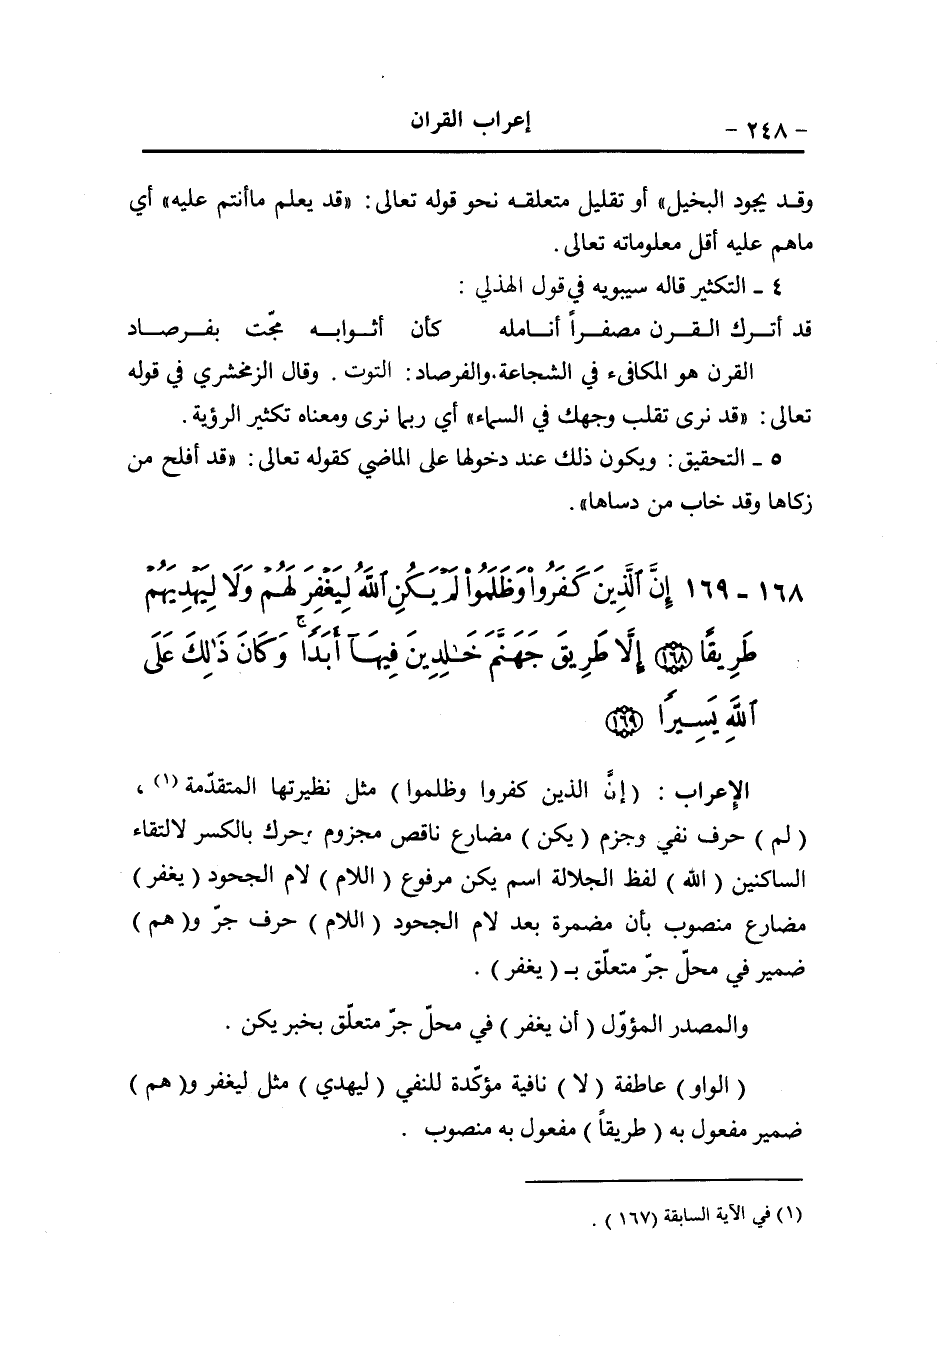 - ٢٤٨ -
إعراب القران
وقـد يجود البخيل» أو تقليل متعلقـه نحو قوله تعالى: «قد يعلم ماأنتم عليه» أي
ماهم عليه أقل معلوماته تعالى.
٤ ـ التكثير قاله سيبويه في قول الهذلي :
قد أتـرك القـرن مصفـراً أنـامله كأن أثـوابـه مجّت بفـرصـاد
القرن هو المكافىء في الشجاعة.والفرصاد: التوت . وقال الزمخشري في قوله
تعالى: «قد نرى تقلب وجهك في السماء» أي ربما نرى ومعناه تكثير الرؤية .
٥ ـ التحقيق: ويكون ذلك عند دخولها على الماضي كقوله تعالى: «قد أفلح من
زكاها وقد خاب من دساها» .
١٦٨ ـ ١٦٩ إِنَّ ٱلَّذِينَ كَفَرُوا۟ وَظَلَمُوا۟ لَمْ يَكُنِ ٱللَّهُ لِيَغْفِرَ لَهُمْ وَلَا لِيَهْدِيَهُمْ
طَرِيقًا ۝١٦٨ إِلَّا طَرِيقَ جَهَنَّمَ خَـٰلِدِينَ فِيهَآ أَبَدًا ۚ وَكَانَ ذَٰلِكَ عَلَى
ٱللَّهِ يَسِيرًا ۝١٦٩
الإعراب : (إنَّ الذين كفروا وظلموا) مثل نظيرتها المتقدّمة (١) ،
(لم) حرف نفي وجزم (يكن) مضارع ناقص مجزوم وحرك بالكسر لالتقاء
الساكنين (الله) لفظ الجلالة اسم يكن مرفوع (اللام) لام الجحود (يغفر)
مضارع منصوب بأن مضمرة بعد لام الجحود (اللام) حرف جرّ و(هم)
ضمير في محلّ جرّ متعلّق بـ (يغفر) .
والمصدر المؤوّل (أن يغفر) في محلّ جرّ متعلّق بخبر يكن .
(الواو) عاطفة (لا) نافية مؤكّدة للنفي (ليهدي) مثل ليغفر و(هم)
ضمير مفعول به (طريقاً) مفعول به منصوب .
(١) في الآية السابقة (١٦٧) .